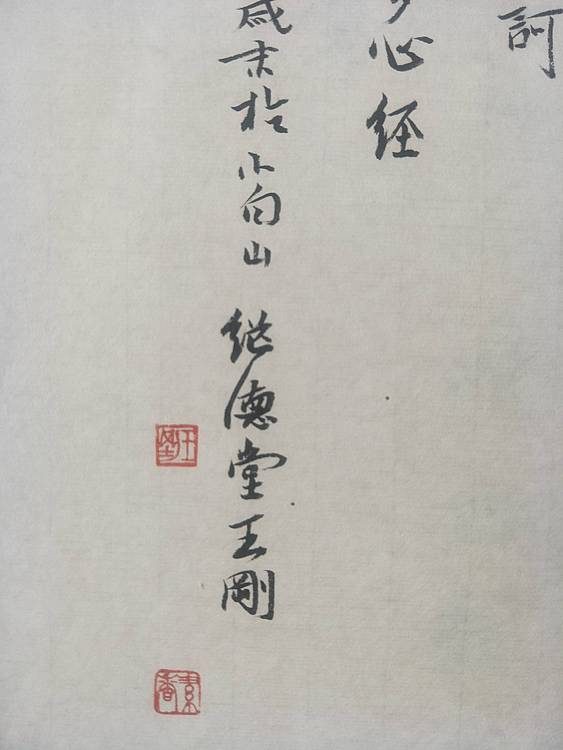 訶
心經
歲末於小白山 继德堂王剛
素香